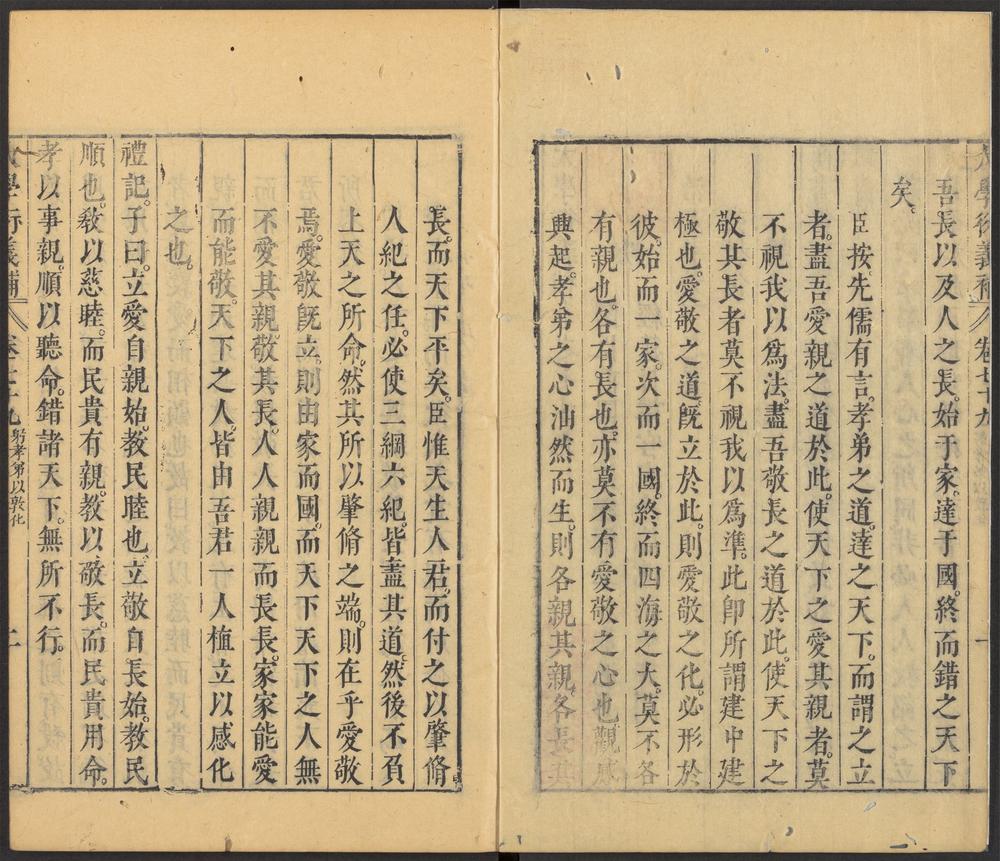 大學衍義補 卷七十九
吾長以及人之長始于家達于國終而錯之天下
矣。
臣按先儒有言孝弟之道達之天下。而謂之立
者。盡吾愛親之道於此。使天下之愛其親者。莫
不視我以爲法。盡吾敬長之道於此。使天下之
敬其長者莫不視我以爲準。此卽所謂建中建
極也。愛敬之道。旣立於此。則愛敬之化。必形於
彼。始而一家。次而一國。終而四海之大。莫不各
有親也。各有長也。亦莫不有愛敬之心也觀感
興起。孝弟之心油然而生。則各親其親各長其
長。而天下平矣。臣惟天生人君。而付之以肇脩
人紀之任。必使三綱六紀。皆盡其道。然後不負
上天之所命。然其所以肇脩之端。則在乎愛敬
焉。愛敬旣立。則由家而國。而天下天下之人無
不愛其親敬其長人人親親而長長。家家能愛
而能敬。天下之人。皆由吾君一人植立以感化
之也。
禮記。子曰。立愛自親始。教民睦也。立敬自長始。教民
順也。敎以慈睦。而民貴有親。教以敬長。而民貴用命。
孝以事親。順以聽命。錯諸天下。無所不行。
大學衍義補 卷七十九 躬孝弟以敦化 二